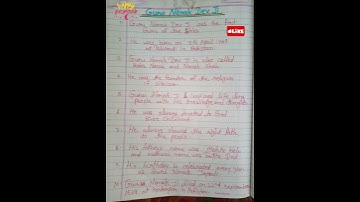 Guru Nanak Dev Ji
1. Guru Nanak Dev Ji was the first
Guru of the Sikhs
2. He was born on 15th April 1469
at Talwandi in Pakistan
3. Guru Nanak Dev Ji is also called
Baba Nanak and Nanak Shah
4. He was the founder of the religion
of Sikhism
5. Guru Nanak Ji inspired life long
people with his knowledge and thoughts
6. He was always devoted to God
since childhood
7. He always showed the right path
to the people
8. His father's name was Mehta Kalu
and mother's name was
9. His birthday is celebrated every year
as Guru Nanak Jayanti
10. Guru Nanak Ji died on 22nd September
1539 at Kartarpur in Pakistan
LIKE